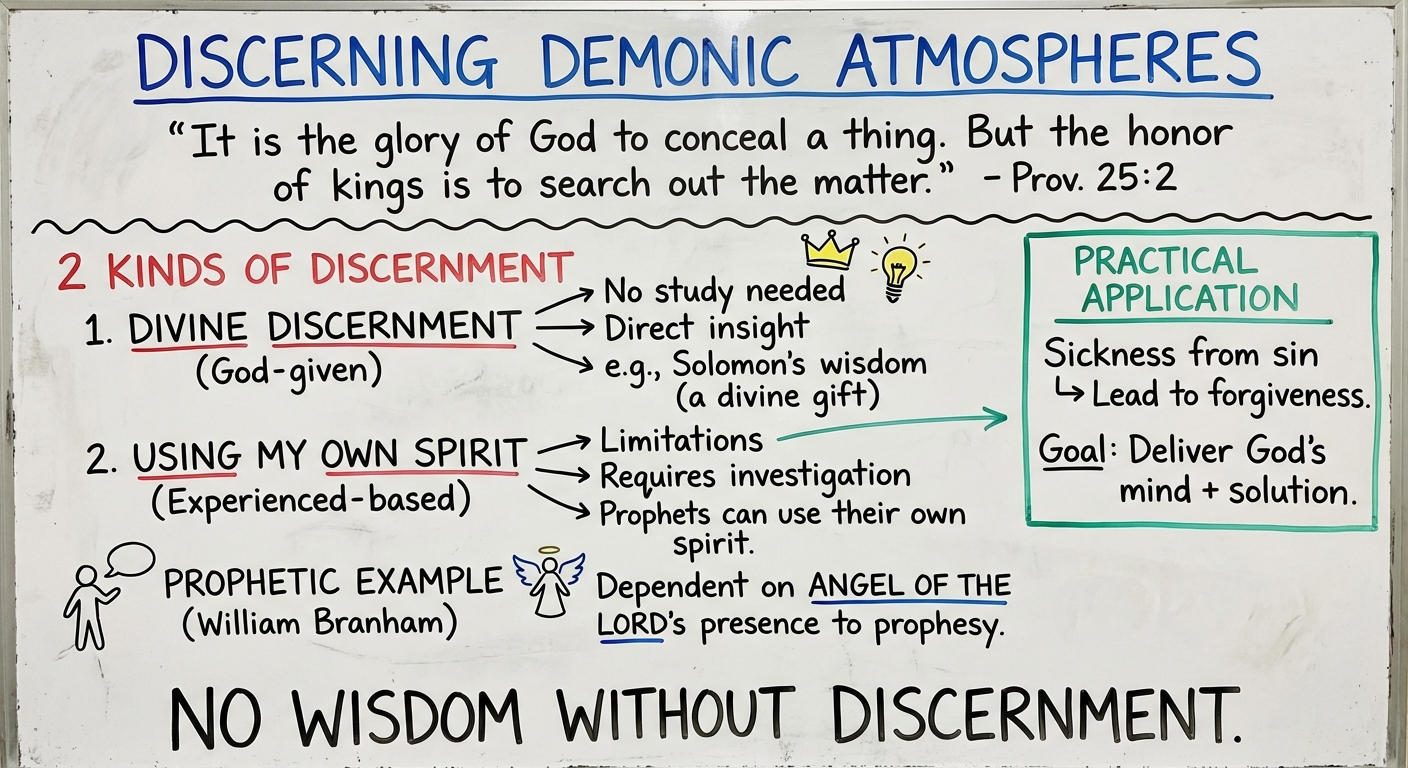 DISCERNING DEMONIC ATMOSPHERES
"It is the glory of God to conceal a thing. But the honor
of kings is to search out the matter." – Prov. 25:2
2 KINDS OF DISCERNMENT
1. DIVINE DISCERNMENT
(God-given)
No study needed
Direct insight
e.g., Solomon's wisdom
(a divine gift)
2. USING MY OWN SPIRIT
(Experienced-based)
Limitations
Requires investigation
Prophets can use their own
spirit.
PROPHETIC EXAMPLE
(William Branham)
Dependent on ANGEL OF THE
LORD's presence to prophesy.
PRACTICAL
APPLICATION
Sickness from sin
↳ Lead to forgiveness.
Goal: Deliver God's
mind + solution.
NO WISDOM WITHOUT DISCERNMENT.